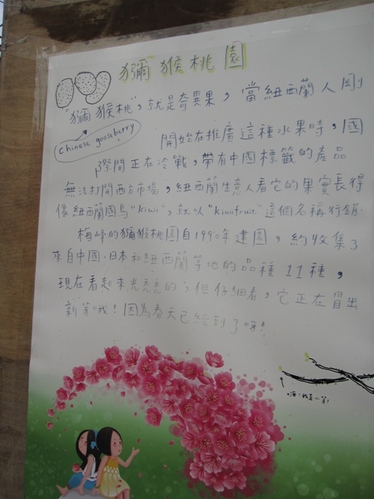 獼猴桃園
"獼猴桃",就是奇異果,當紐西蘭人剛
Chinese gooseberry
開始在推廣這種水果時,國
際間正在冷戰,帶有中國標籤的產品
無法打開西方市場,紐西蘭生意人看它的果實長得
像紐西蘭國鳥"kiwi",就以"kiwifruit"這個名稱行銷
梅峰的獼猴桃園自1990年建園,約收集了
來自中國、日本和紐西蘭等地的品種11種,
現在看起來光禿禿的,但仔細看,它正在冒出
新芽哦!因為春天已經到了嘛!